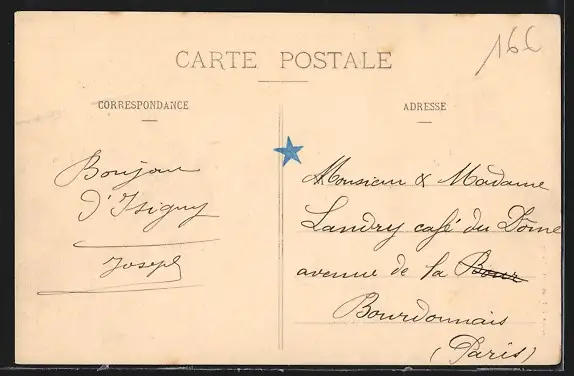 CARTE POSTALE
166
CORRESPONDANCE
ADRESSE
Bonjour
d'Isigny
Joseph
Monsieur & Madame
Landry café du Dôme
avenue de la Bour
Bourdonnais
(Paris)